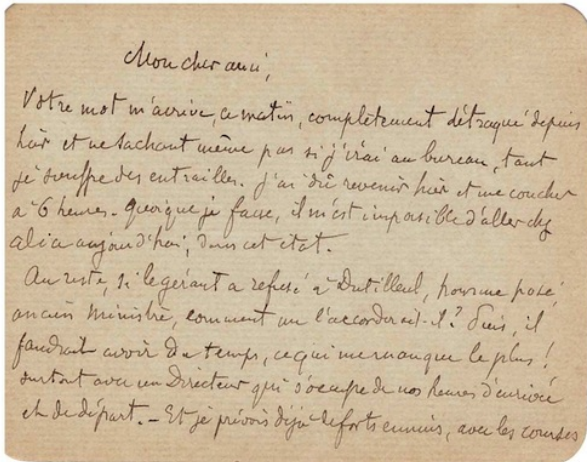 Mon cher ami,
Votre mot m'arrive, ce matin, complètement détraqué depuis
hier et ne sachant même pas si j'irai au bureau, tant
je souffre des entrailles. J'ai dû revenir hier et me coucher
à 6 heures. Quoique je fasse, il m'est impossible d'aller chez
alica aujourd'hui, dans cet état.
Au reste, si le gérant a refusé à Dutilleul, homme posé,
ancien ministre, comment me l'accorderait-il? Puis, il
faudrait avoir du temps, ce qui me manque le plus!
surtout avec un Directeur qui s'occupe de nos heures d'arrivée
et de départ. – Et je prévois déjà de forts ennuis, avec les courses